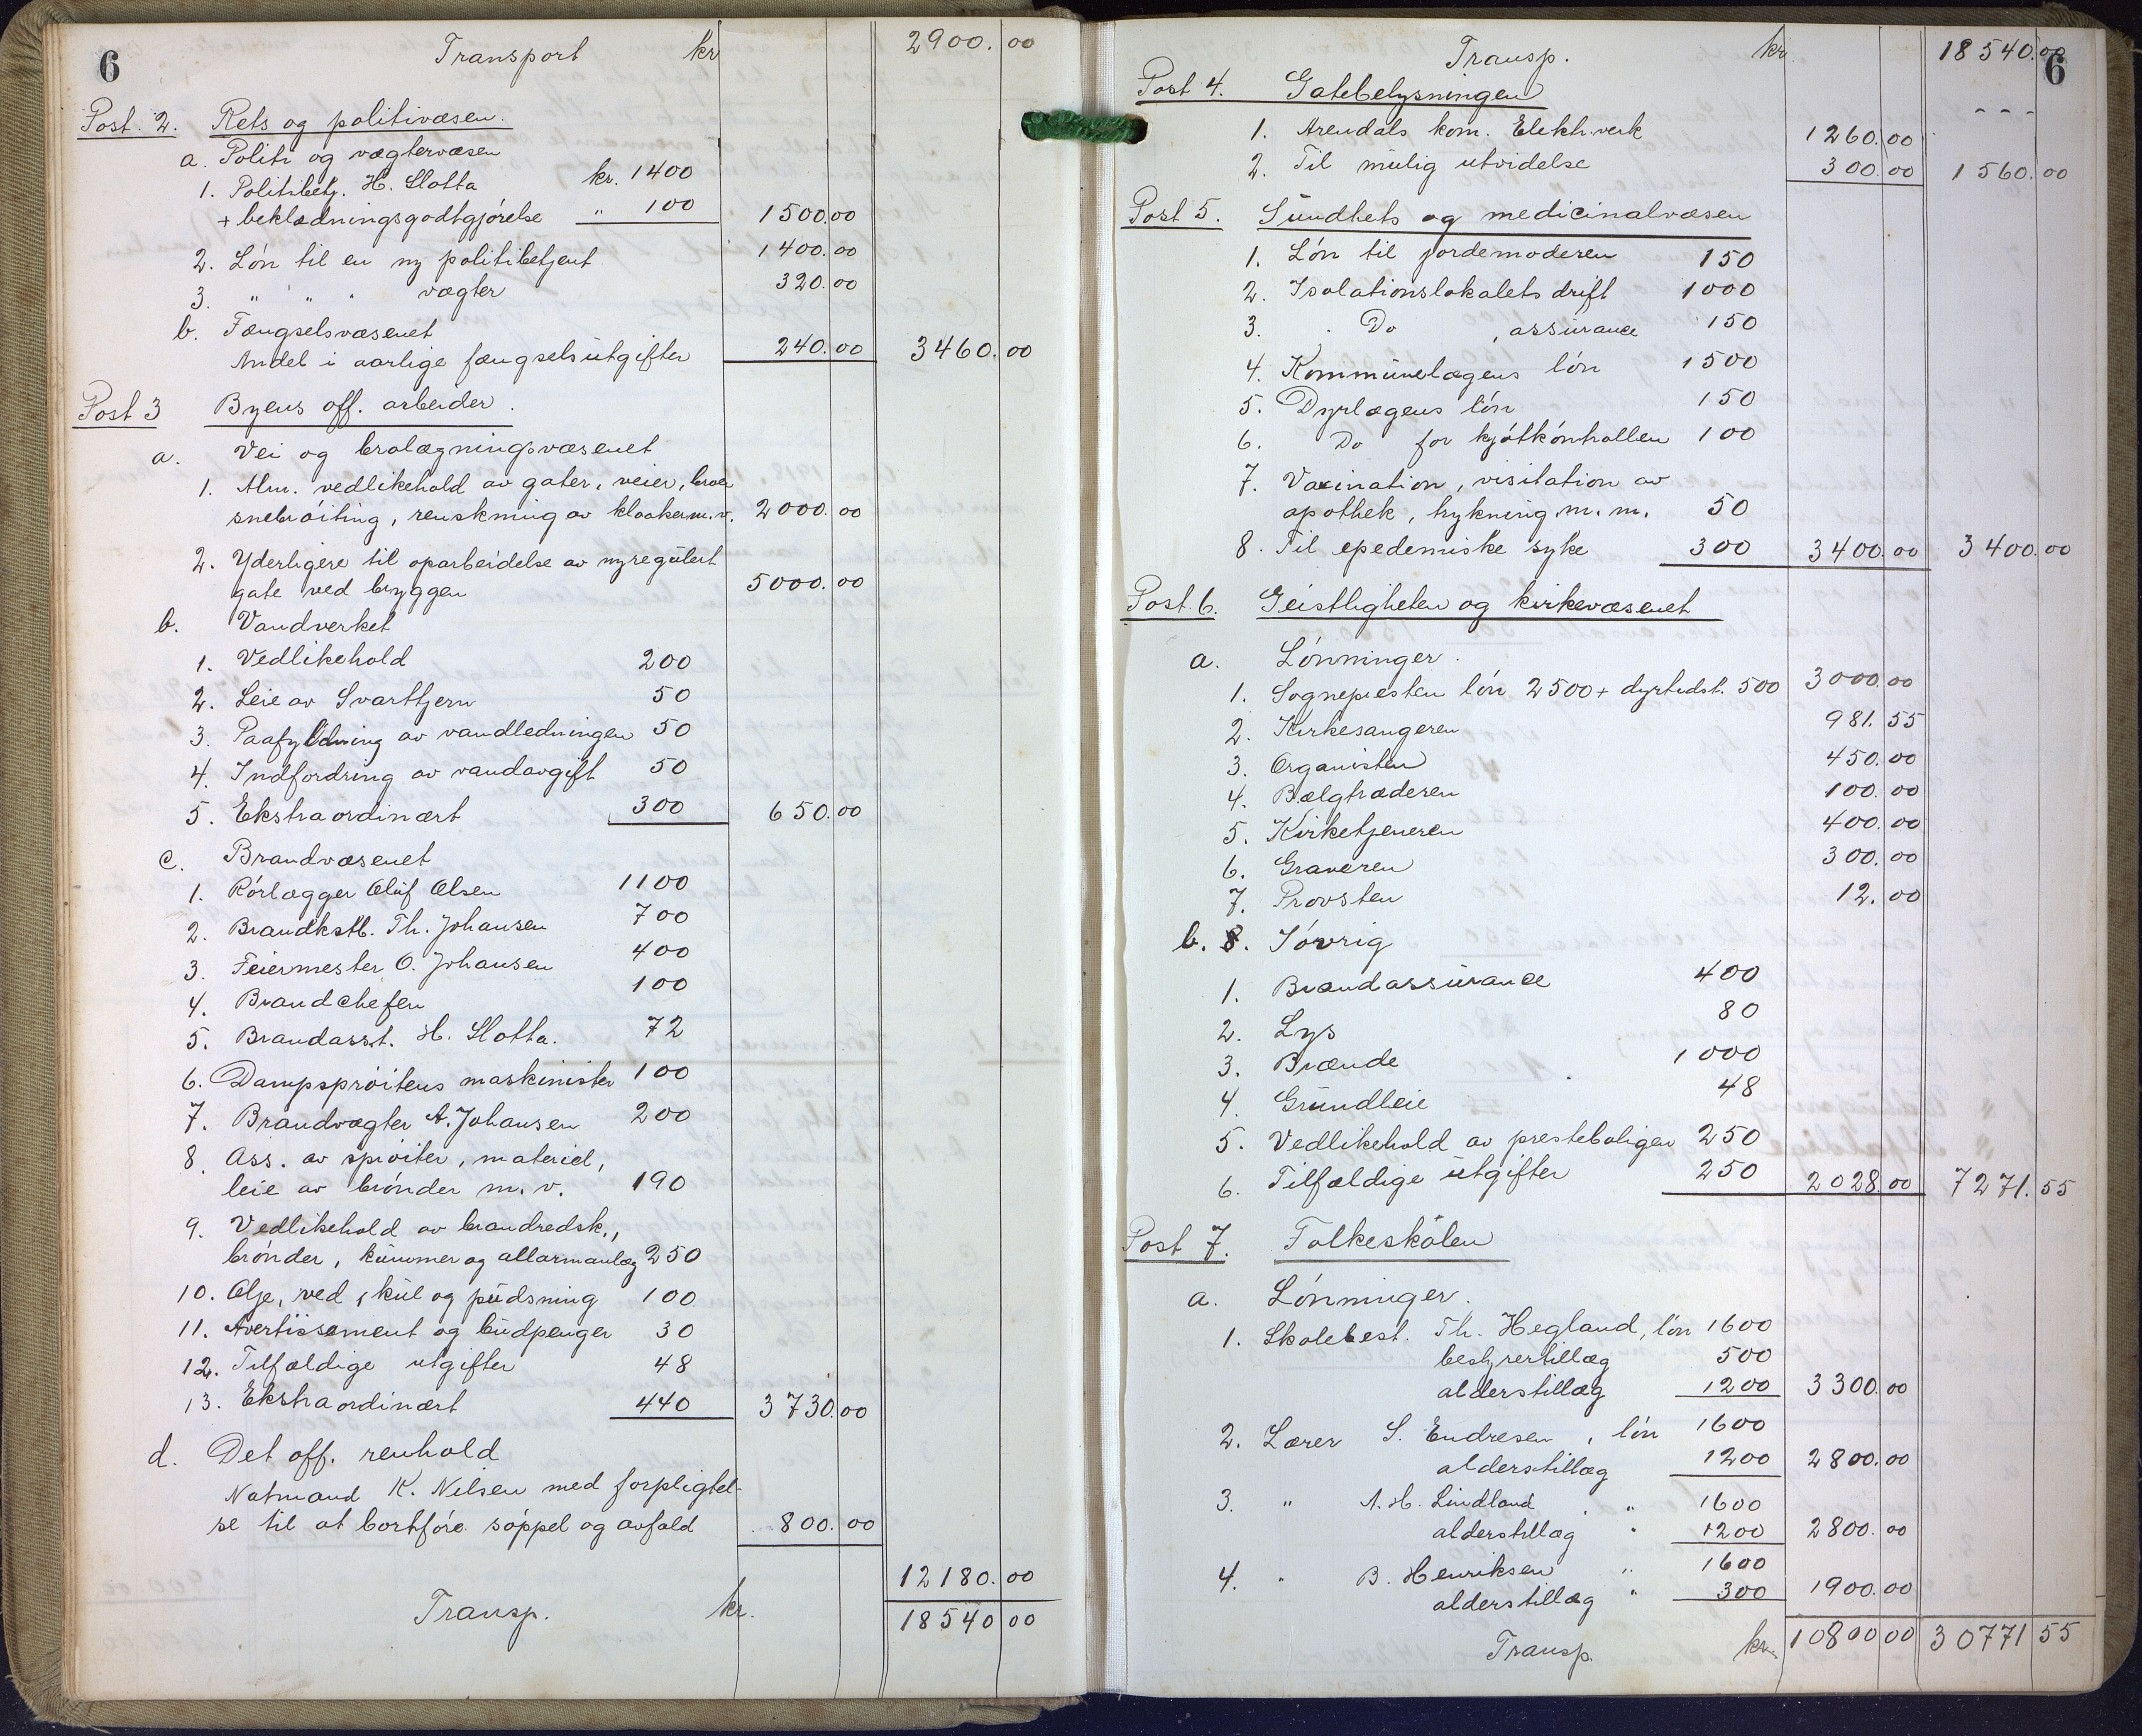 6
Transport kr 2900.00
Post. 2. Rets og politivæsen.
a. Politi og vægtervæsen
1. Politibetj. H. Slotta kr. 1400
+ beklædningsgodtgjørelse " 100 1500.00
2. Løn til en ny politibetjent 1400.00
3. " " " vægter 320.00
b. Fængselsvæsenet
Andel i aarlige fængselsutgifter 240.00 3460.00
Post 3 Byens off. arbeider.
a. Vei og brolægningsvæsenet
1. Alm. vedlikehold av gater, veier, broer
snebrøiting, renskning av kloaker m.v. 2000.00
2. Yderligere til oparbeidelse av nyregulert
gate ved bryggen 5000.00
b. Vandverket
1. Vedlikehold 200
2. Leie av Svarttjern 50
3. Paafyldning av vandledningen 50
4. Indfordring av vandavgift 50
5. Ekstraordinært 300 650.00
c. Brandvæsenet
1. Rørlægger Oluf Olsen 1100
2. Brandkstb. Th. Johansen 700
3. Feiermester O. Johansen 400
4. Brandchefen 100
5. Brandasst. H. Slotta. 72
6. Dampsprøitens maskinister 100
7. Brandvægter A. Johansen 200
8. Ass. av sprøiter, materiel,
leie av brønder m.v. 190
9. Vedlikehold av brandredsk.,
brønder, kummer og allarmanlæg 250
10. Olje, ved, kul og pudsning 100
11. Avertissement og budpenger 30
12. Tilfældige utgifter 48
13. Ekstraordinært 440 3730.00
d. Det off. renhold
Natmand K. Nilsen med forpligtel-
se til at bortføre søppel og avfald 800.00
12180.00
Transp. kr. 18540 00
6
Transp. kr. 18540.00
Post 4. Gatebelysningen - - -
1. Arendals kom. Elektr.verk 1260.00
2. Til mulig utvidelse 300.00 1560.00
Post 5. Sundhets og medicinalvæsen
1. Løn til jordemoderen 150
2. Isolationslokalets drift 1000
3. Do , assurance 150
4. Kommunelægens løn 1500
5. Dyrlægens løn 150
6. Do for kjøtkontrollen 100
7. Vaxination, visitation av
apothek, trykning m.m. 50
8. Til epedemiske syke 300 3400.00 3400.00
Post 6. Geistligheten og kirkevæsenet
a. Lønninger.
1. Sognepresten løn 2500 + dyrtidst. 500 3000.00
2. Kirkesangeren 981.55
3. Organisten 450.00
4. Bælgtræderen 100.00
5. Kirketjeneren 400.00
6. Graveren 300.00
7. Provsten 12.00
b. 8. Iøvrig
1. Brandassurance 400
2. Lys 80
3. Brænde 1000
4. Grundleie 48
5. Vedlikehold av presteboligen 250
6. Tilfældige utgifter 250 2028.00 7271.55
Post 7. Folkeskolen
a. Lønninger.
1. Skolebest. Th. Hegland, løn 1600
bestyrertillæg 500
alderstillæg 1200 3300.00
2. Lærer S. Endresen, løn 1600
alderstillæg 1200 2800.00
3. " A. H. Lindland " 1600
alderstillæg " 1200 2800.00
4. " B. Henriksen " 1600
alderstillæg " 300 1900.00
Transp. kr. 10800 00 30771 55